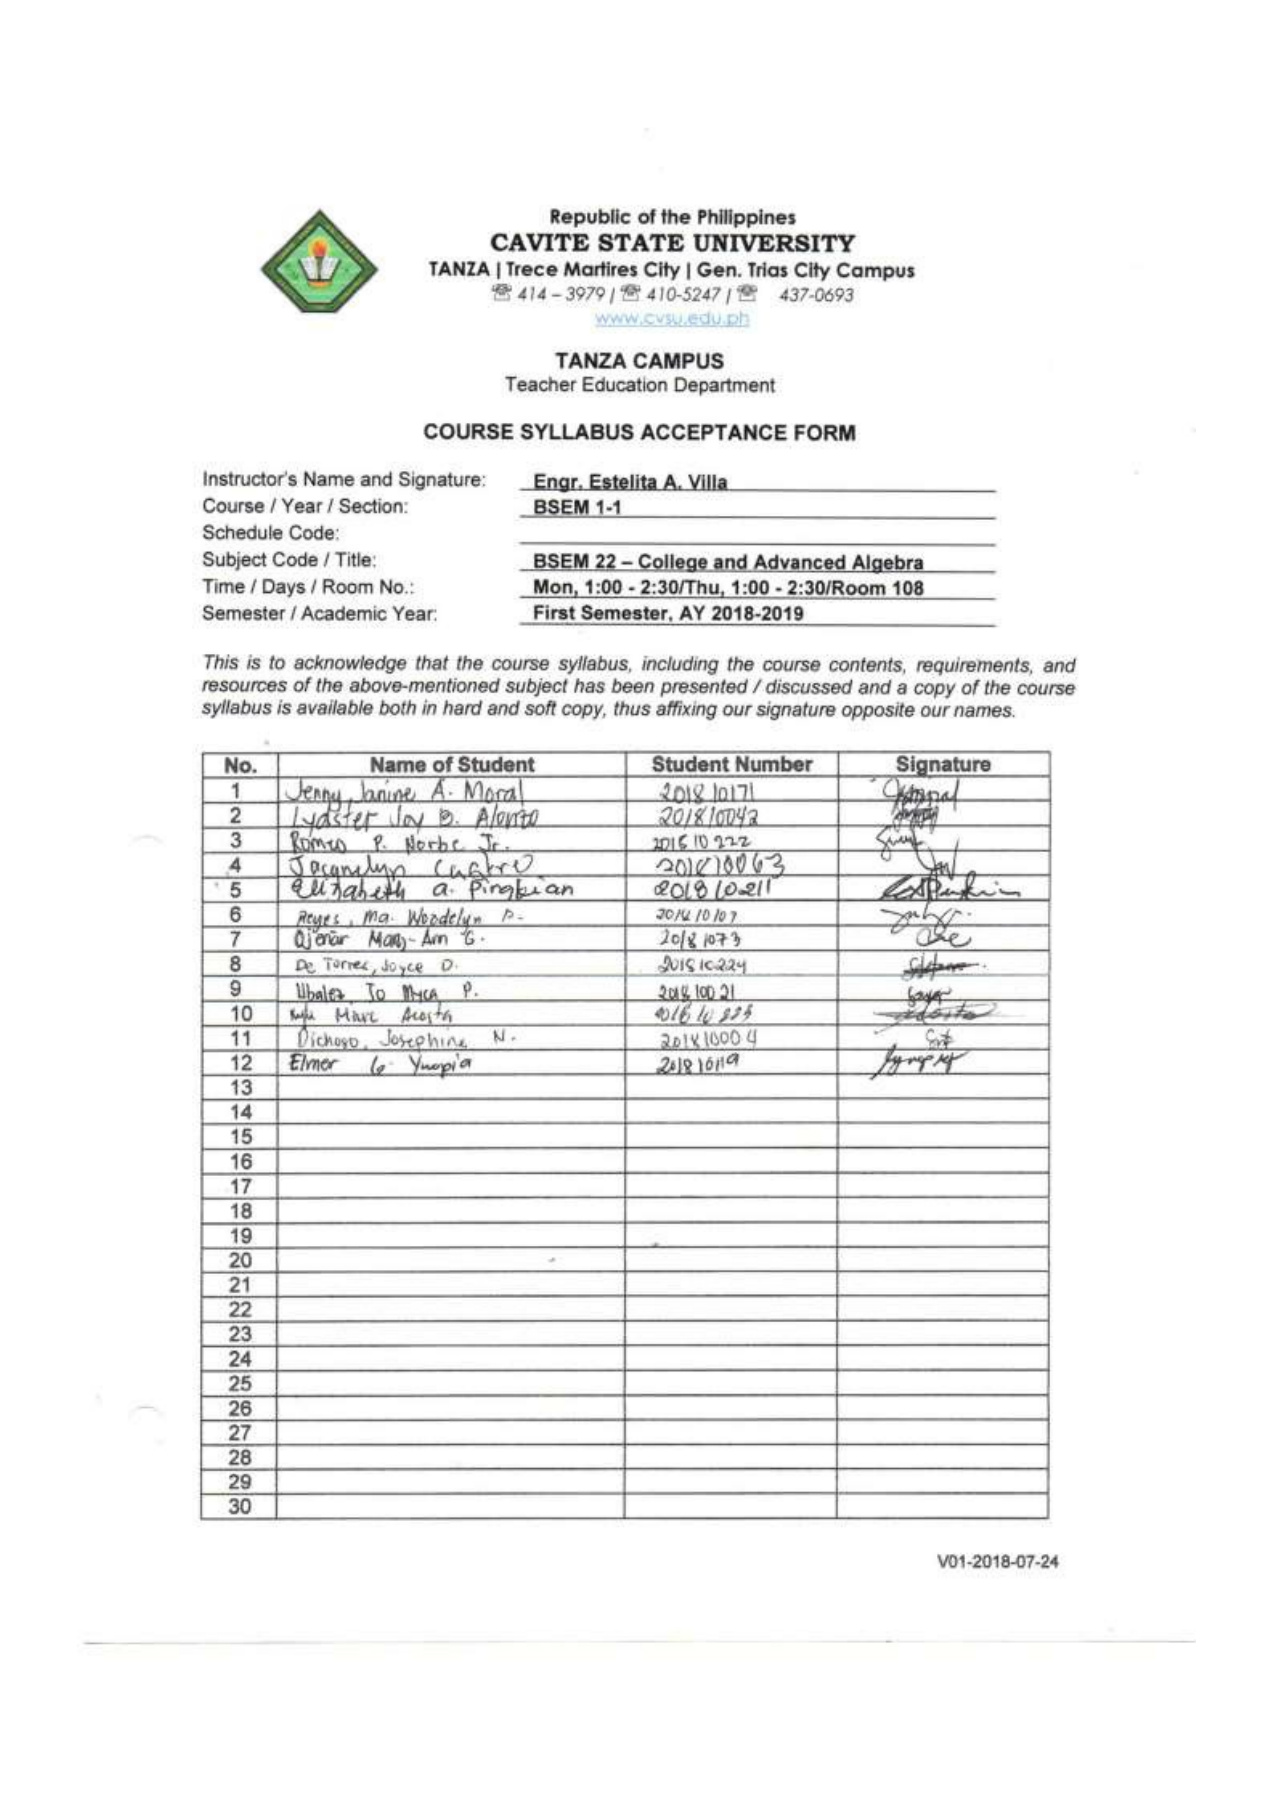 Republic of the Philippines
CAVITE STATE UNIVERSITY
TANZA | Trece Martires City | Gen. Trias City Campus
☏ 414 – 3979 / ☏ 410-5247 / ☏ 437-0693
www.cvsu.edu.ph
TANZA CAMPUS
Teacher Education Department
COURSE SYLLABUS ACCEPTANCE FORM
Instructor's Name and Signature: Engr. Estelita A. Villa
Course / Year / Section: BSEM 1-1
Schedule Code:
Subject Code / Title: BSEM 22 – College and Advanced Algebra
Time / Days / Room No.: Mon, 1:00 - 2:30/Thu, 1:00 - 2:30/Room 108
Semester / Academic Year: First Semester, AY 2018-2019
This is to acknowledge that the course syllabus, including the course contents, requirements, and
resources of the above-mentioned subject has been presented / discussed and a copy of the course
syllabus is available both in hard and soft copy, thus affixing our signature opposite our names.
No. Name of Student Student Number Signature
1 Jenny Janine A. Moral 201810171
2 Lydster Joy B. 201810042
3 Romeo P. Norbe Jr. 201810222
4 Jacquelyn Castro 201810063
5 Elizabeth a. Pingkian 201810211
6 Reyes, Ma. Woodelyn P. 201810107
7 Mary-Ann G. 20181073
8 De Torres, Joyce D. 201810224
9 Jo Myca P. 201810021
10 Marc Acosta
11 Dichoso, Josephine N. 201810004
12 Elmer G. Yuopia 201810119
13
14
15
16
17
18
19
20
21
22
23
24
25
26
27
28
29
30
V01-2018-07-24